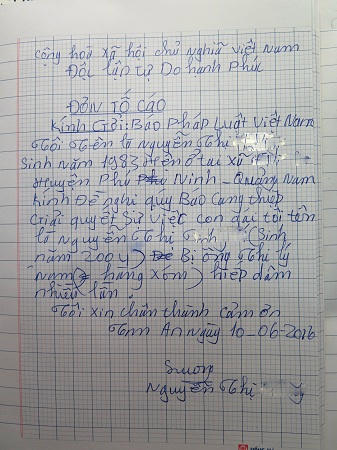 Cộng hoà xã hội chủ nghĩa việt Nam
Độc lập tự Do hạnh Phúc
ĐƠN TỐ CÁO
Kính Gởi: Báo Pháp Luật Việt Nam
Tôi tên là nguyễn thị
Sinh năm 1983 Hiện ở tại xã
Huyện Phú Ninh - Quảng Nam
Kính Đề nghị quý Báo Can thiệp
Giải quyết Sự việc con gái tôi tên
là nguyễn thị (Sinh
năm 2004) Bị ông lý
nam (hàng xóm) hiếp dâm
nhiều lần.
Tôi xin chân thành cảm ơn
Tam An ngày 10-06-2016
Nguyễn Thị